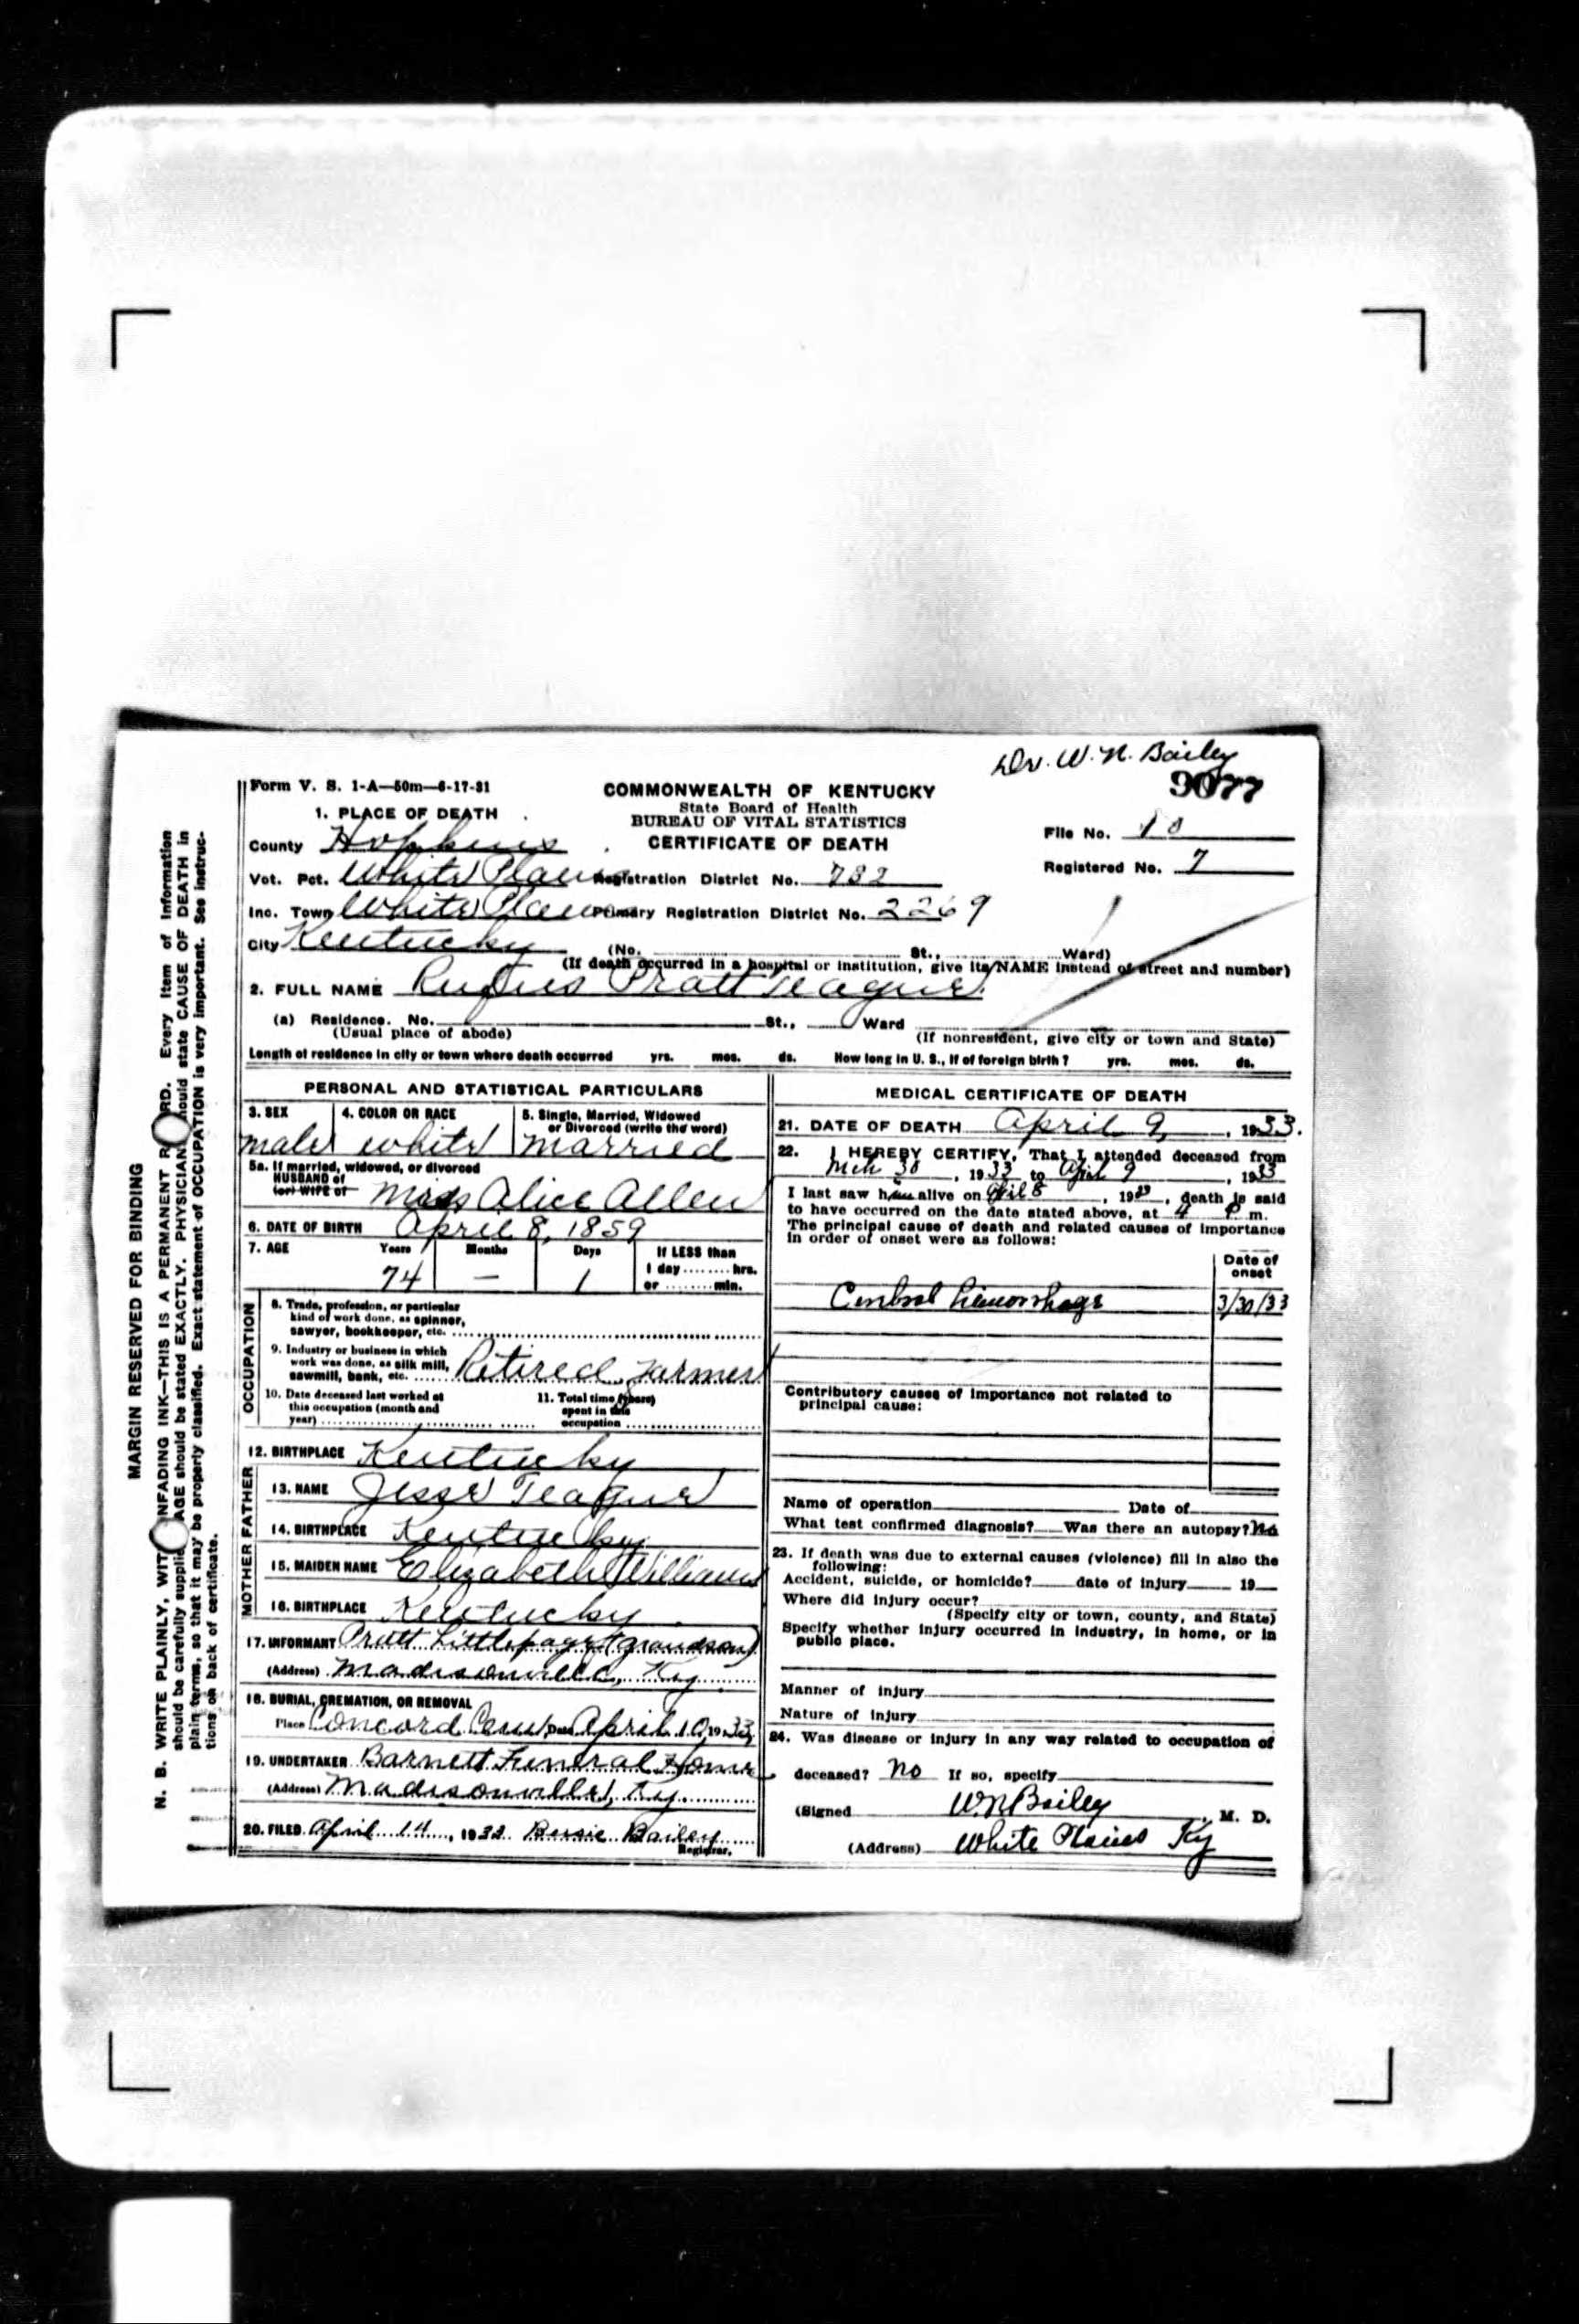 Dr. W. N. Bailey
9077
Form V. S. 1-A—50m—6-17-31
COMMONWEALTH OF KENTUCKY
State Board of Health
BUREAU OF VITAL STATISTICS
CERTIFICATE OF DEATH
1. PLACE OF DEATH
File No. 10
County Hopkins
Registered No. 7
Vot. Pct. White Plains Registration District No. 782
Inc. Town White Plains Primary Registration District No. 2269
City Kentucky (No. St., Ward)
(If death occurred in a hospital or institution, give its NAME instead of street and number)
2. FULL NAME Rufus Pratt Teague
(a) Residence. No. St., Ward
(Usual place of abode) (If nonresident, give city or town and State)
Length of residence in city or town where death occurred yrs. mos. ds. How long in U. S., if of foreign birth? yrs. mos. ds.
PERSONAL AND STATISTICAL PARTICULARS
3. SEX 4. COLOR OR RACE 5. Single, Married, Widowed
or Divorced (write the word)
male white married
5a. If married, widowed, or divorced
HUSBAND of
(or) WIFE of Miss Alice Allen
6. DATE OF BIRTH April 8, 1859
7. AGE Years Months Days If LESS than
1 day ........ hrs.
74 — 1 or ........ min.
OCCUPATION
8. Trade, profession, or particular
kind of work done, as spinner,
sawyer, bookkeeper, etc.
9. Industry or business in which
work was done, as silk mill,
sawmill, bank, etc. Retired Farmer
10. Date deceased last worked at
this occupation (month and
year)
11. Total time (years)
spent in this
occupation
12. BIRTHPLACE Kentucky
FATHER
13. NAME Jesse Teague
14. BIRTHPLACE Kentucky
MOTHER
15. MAIDEN NAME Elizabeth Williams
16. BIRTHPLACE Kentucky
17. INFORMANT Pratt Littlepage (grandson)
(Address) Madisonville, Ky
18. BURIAL, CREMATION, OR REMOVAL
Place Concord Cem Date April 10, 1933
19. UNDERTAKER Barnett Funeral Home
(Address) Madisonville, Ky.
20. FILED April 14, 1933 Bessie Bailey
Registrar.
MEDICAL CERTIFICATE OF DEATH
21. DATE OF DEATH April 9, 1933.
22. I HEREBY CERTIFY, That I attended deceased from
Mch 30, 1933 to April 9, 1933
I last saw him alive on April 8, 1933, death is said
to have occurred on the date stated above, at 4 P m.
The principal cause of death and related causes of importance
in order of onset were as follows:
Date of
onset
Cerebral hemorrhage 3/30/33
Contributory causes of importance not related to
principal cause:
Name of operation Date of
What test confirmed diagnosis? Was there an autopsy? No
23. If death was due to external causes (violence) fill in also the
following:
Accident, suicide, or homicide? date of injury 19
Where did injury occur?
(Specify city or town, county, and State)
Specify whether injury occurred in industry, in home, or in
public place.
Manner of injury
Nature of injury
24. Was disease or injury in any way related to occupation of
deceased? No If so, specify
(Signed WN Bailey, M. D.
(Address) White Plains Ky
MARGIN RESERVED FOR BINDING
N. B. WRITE PLAINLY, WITH UNFADING INK—THIS IS A PERMANENT RECORD. Every item of information
should be carefully supplied. AGE should be stated EXACTLY. PHYSICIANS should state CAUSE OF DEATH in
plain terms, so that it may be properly classified. Exact statement of OCCUPATION is very important. See instruc-
tions on back of certificate.